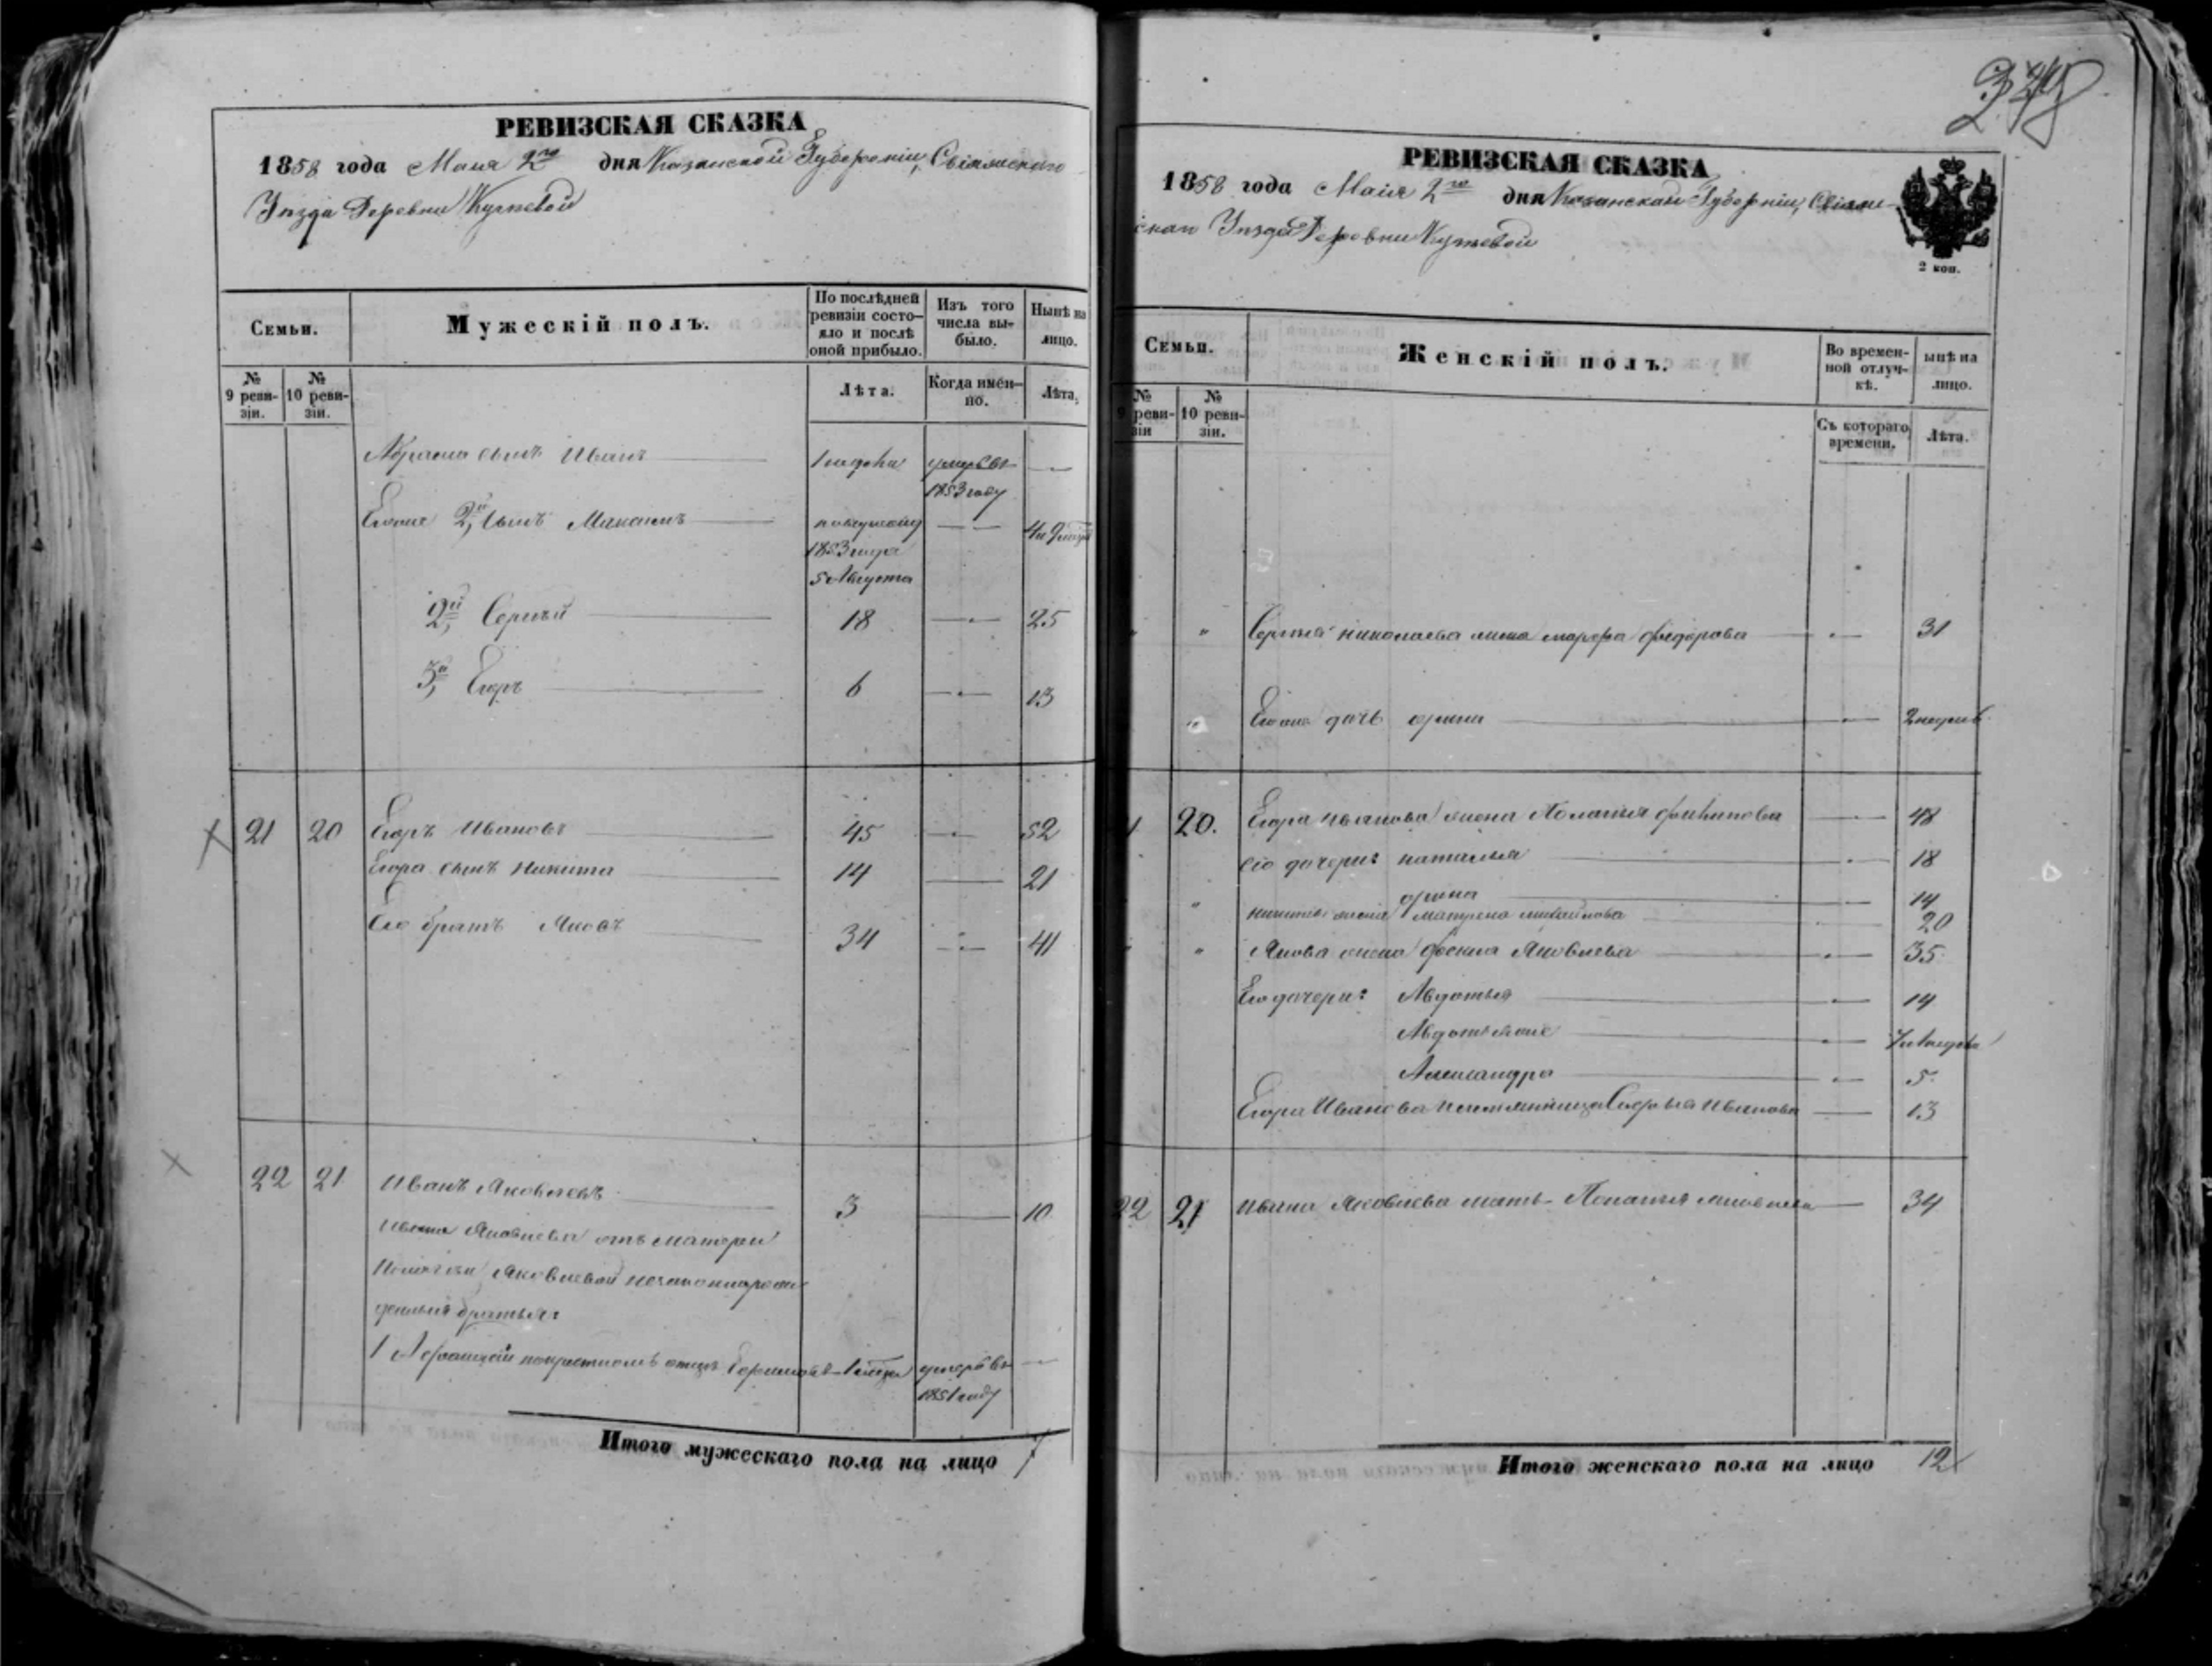 РЕВИЗСКАЯ СКАЗКА
1858 года Маія 2го дня Казанской Губерніи, Свіяжскаго
Уѣзда Деревни
Семьи.
Мужескій полъ.
По послѣдней ревизіи состояло и послѣ оной прибыло.
Изъ того числа выбыло.
Нынѣ на лицо.
№ 9 ревизіи.
№ 10 ревизіи.
Лѣта.
Когда именно.
Лѣта.
Абрама сынъ Иванъ умеръ въ 1853 году
2й сынъ Максимъ 1853 года 5 Августа
2й Сергѣй 18 25
3й Егоръ 6 13
21 20 Егоръ Ивановъ 45 52
Егора сынъ Никита 14 21
Его братъ Яковъ 34 41
22 21 Иванъ Яковлевъ 3 10
Ивана Яковлева отъ матери
Яковлевой незаконнорож
денныя братья:
1 отцѣ умеръ въ 1851 году
Итого мужескаго пола на лицо 7
РЕВИЗСКАЯ СКАЗКА
1858 года Маія 2го дня Казанской Губерніи, Свіяж
скаго Уѣзда Деревни
2 коп.
Семьи.
Женскій полъ.
Во временной отлучкѣ.
ынѣ на лицо.
№ 9 ревизіи
№ 10 ревизіи.
Съ котораго времени.
Лѣта.
" " Сергѣя Николаева жена марфа федорова 31
" дочь орина
20. Егора иванова жена филипова 48
его дочери: наталья 18
" орина 14
никиты жена Матрена михайлова 20
" " Якова жена Яковлева 35
Его дочери: Авдотья 14
Авдотья
Александра 5
Егора Иванова племянница Софья иванова 13
22 21 ивана Яковлева мать 34
Итого женскаго пола на лицо 12